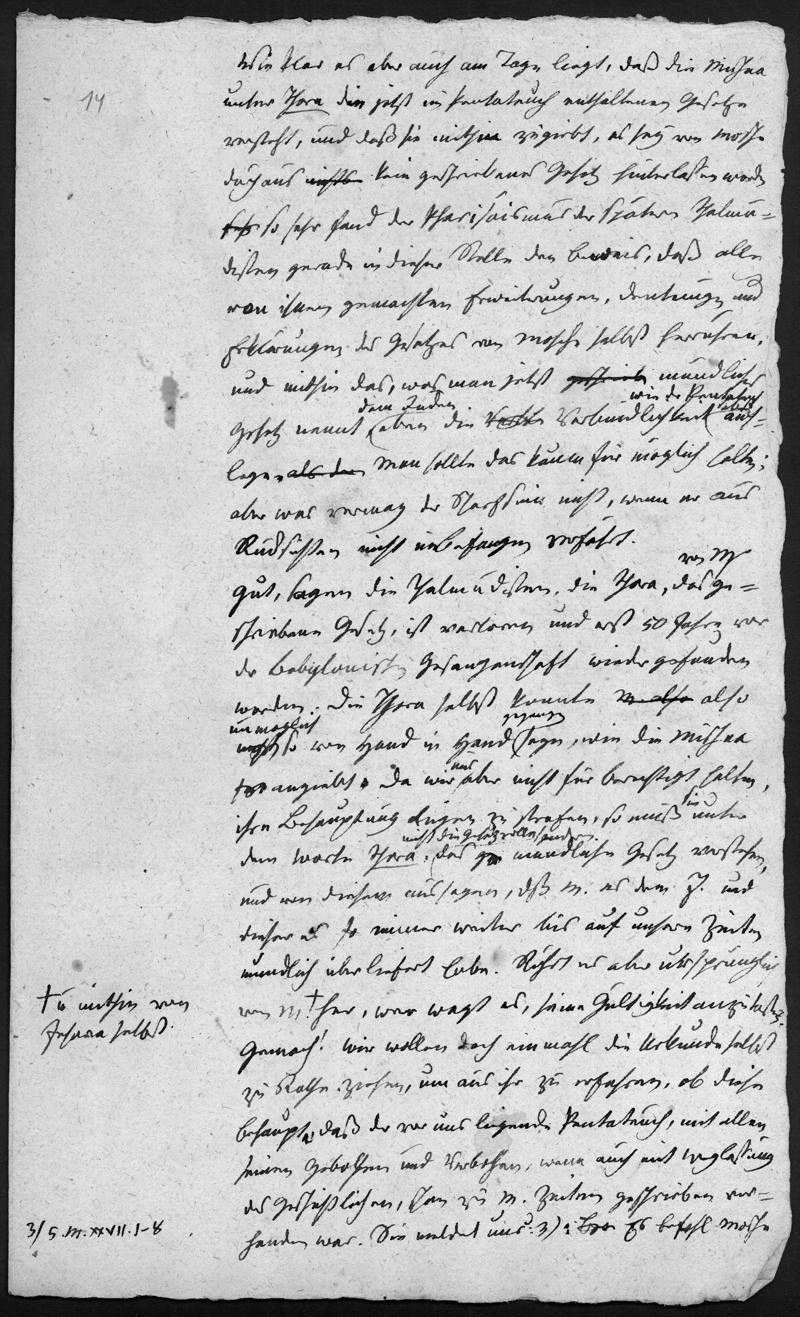 14
Wie klar es aber auch am Tage liegt, daß die Mischna
unter Thora die jetzt im Pentateuch enthaltenen Gesetze
versteht, und daß sie mithin zugiebt, es sey von Mosche
durchaus nichts kein geschriebenes Gesetz hinterlassen worden
so sehr fand der Pharisäismus der spätern Talmu=
disten gerade in dieser Stelle den Beweis, daß alle
von ihnen gemachten Erweiterungen, Deutungen und
Erklärungen des Gesetzes von Mosche selbst herrühren,
und mithin das, was man jetzt mündliches
dem Juden wie der Pentateuch
Gesetz nennt eben die Verbindlichkeit auf=
lege, als den Man sollte das kaum für möglich halten;
aber was vermag der Scharfsinn nicht, wenn er aus
Rücksichten nicht unbefangen verfährt.
von M
Gut, sagen die Talmudisten, die Thora, das ge=
schriebene Gesetz, ist verloren und erst 50 Jahre vor
der Babylonischen Gefangenschaft wieder gefunden
worden. Die Thora selbst konnte also
unmöglich gegangen
so von Hand in Hand seyn, wie die Mischna
angiebt. Da wir uns aber nicht für berechtigt halten,
ihre Behauptung Lügen zu strafen, so muß sie unter
nicht die Gesetzrolle sondern
dem Worte Thora, das mündliche Gesetz verstehen,
und von diesem aussagen, daß M. es dem J. und
dieser es so immer weiter bis auf unsere Zeiten
mündlich überliefert habe. Rührt es aber ursprünglich
von M. † her, wer wagt es, seine Gültigkeit anzutasten?
† u mithin von
Jehova selbst.
Gemach! wir wollen doch einmahl die Urkunde selbst
zu Rathe ziehen, um aus ihr zu erfahren, ob diese
behaupte, daß der vor uns liegende Pentateuch, mit allen
seinen Gebothen und Verbothen, wenn auch mit Weglassung
des Geschichtlichen, schon zu M. Zeiten geschrieben vor=
handen war. Sie meldet uns 3): Es befehl Mosche
3/ 5. M. XXVII. 1-8